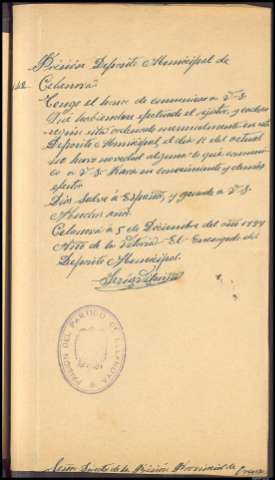 Prision Deposito Municipal de
Celanova
Tengo el honor de comunicar a V. S.
Que habiendose efectuado el
ordenado mensualmente en este
Deposito Municipal el dia 1º del actual
no hubo novedad alguna lo que comuni
co a V. S. para su conocimiento y demás
efectos
Dios Salve a España, y guarde a V. S.
Muchos años
Celanova a 5 de Diciembre del año 1939
Año de la Victoria El Encargado del
Deposito Municipal.
PRISION DEL PARTIDO DE CELANOVA
Señor de la Prision Provincial de Orense